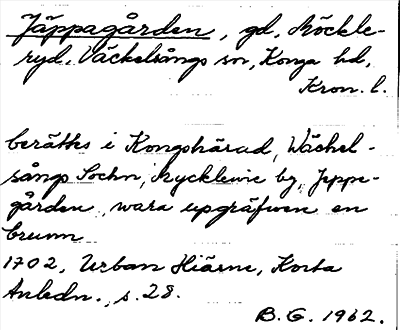 Jäppagården, gd, Möckle-
ryd, Väckelsångs sn, Konga hd,
Kron. l.
berättes i Kongshärad, Wächel-
sångs Sochn, Mycklewie by, Jeppe-
gården, wara upgräfwen en
brunn
1702, Urban Hiärne, Korta
Anledn., s. 28.
B. G. 1962.